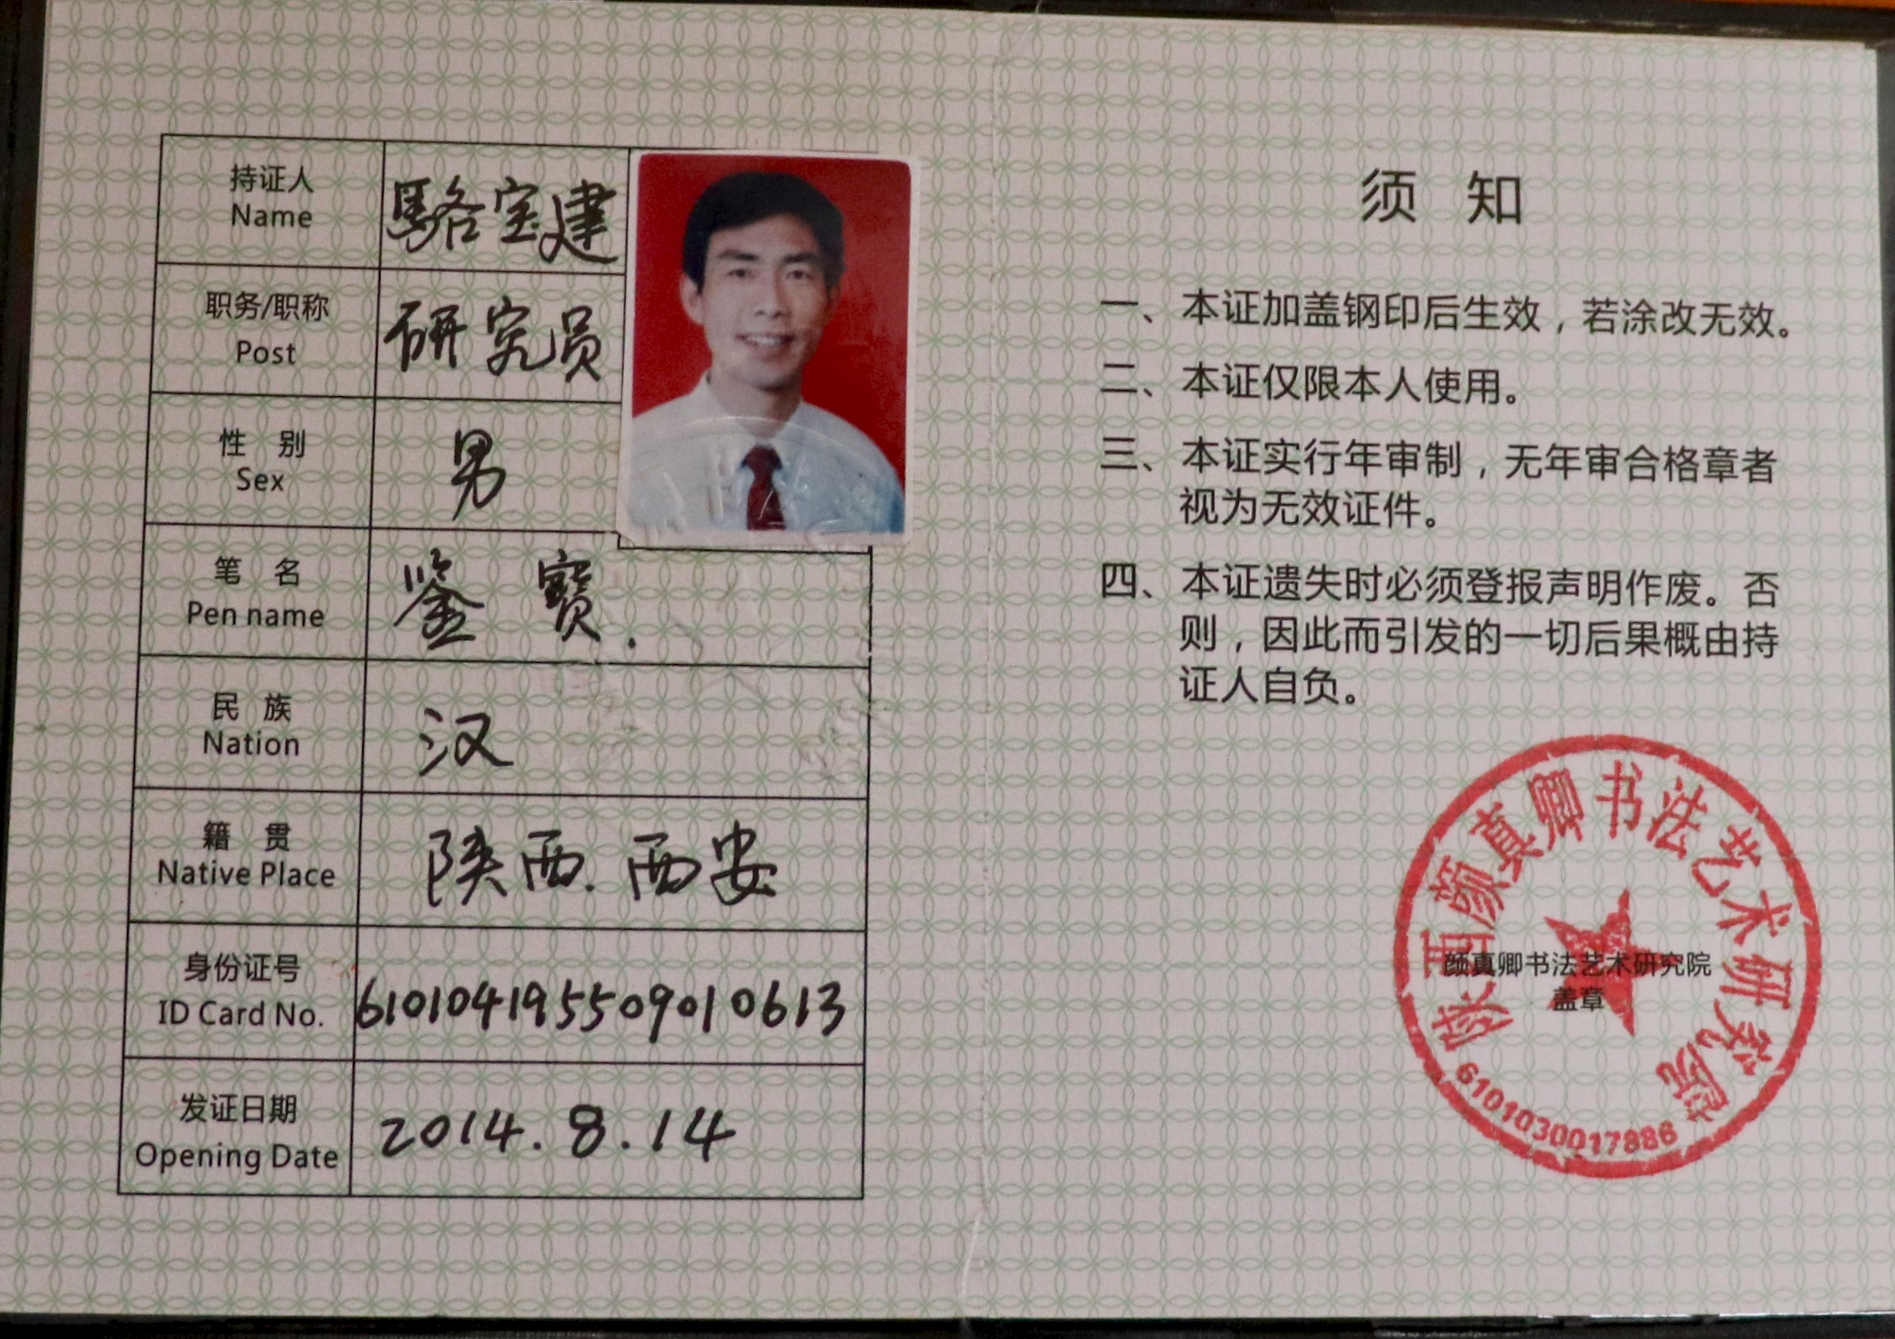 持证人
Name
駱宝建
职务/职称
Post
研究员
性 别
Sex
男
笔 名
Pen name
鉴 寶.
民 族
Nation
汉
籍 贯
Native Place
陕西.西安
身份证号
ID Card No.
610104195509010613
发证日期
Opening Date
2014.8.14
须 知
一、本证加盖钢印后生效，若涂改无效。
二、本证仅限本人使用。
三、本证实行年审制，无年审合格章者
视为无效证件。
四、本证遗失时必须登报声明作废。否
则，因此而引发的一切后果概由持
证人自负。
陕西颜真卿书法艺术研究院
颜真卿书法艺术研究院
盖章
6101030017886